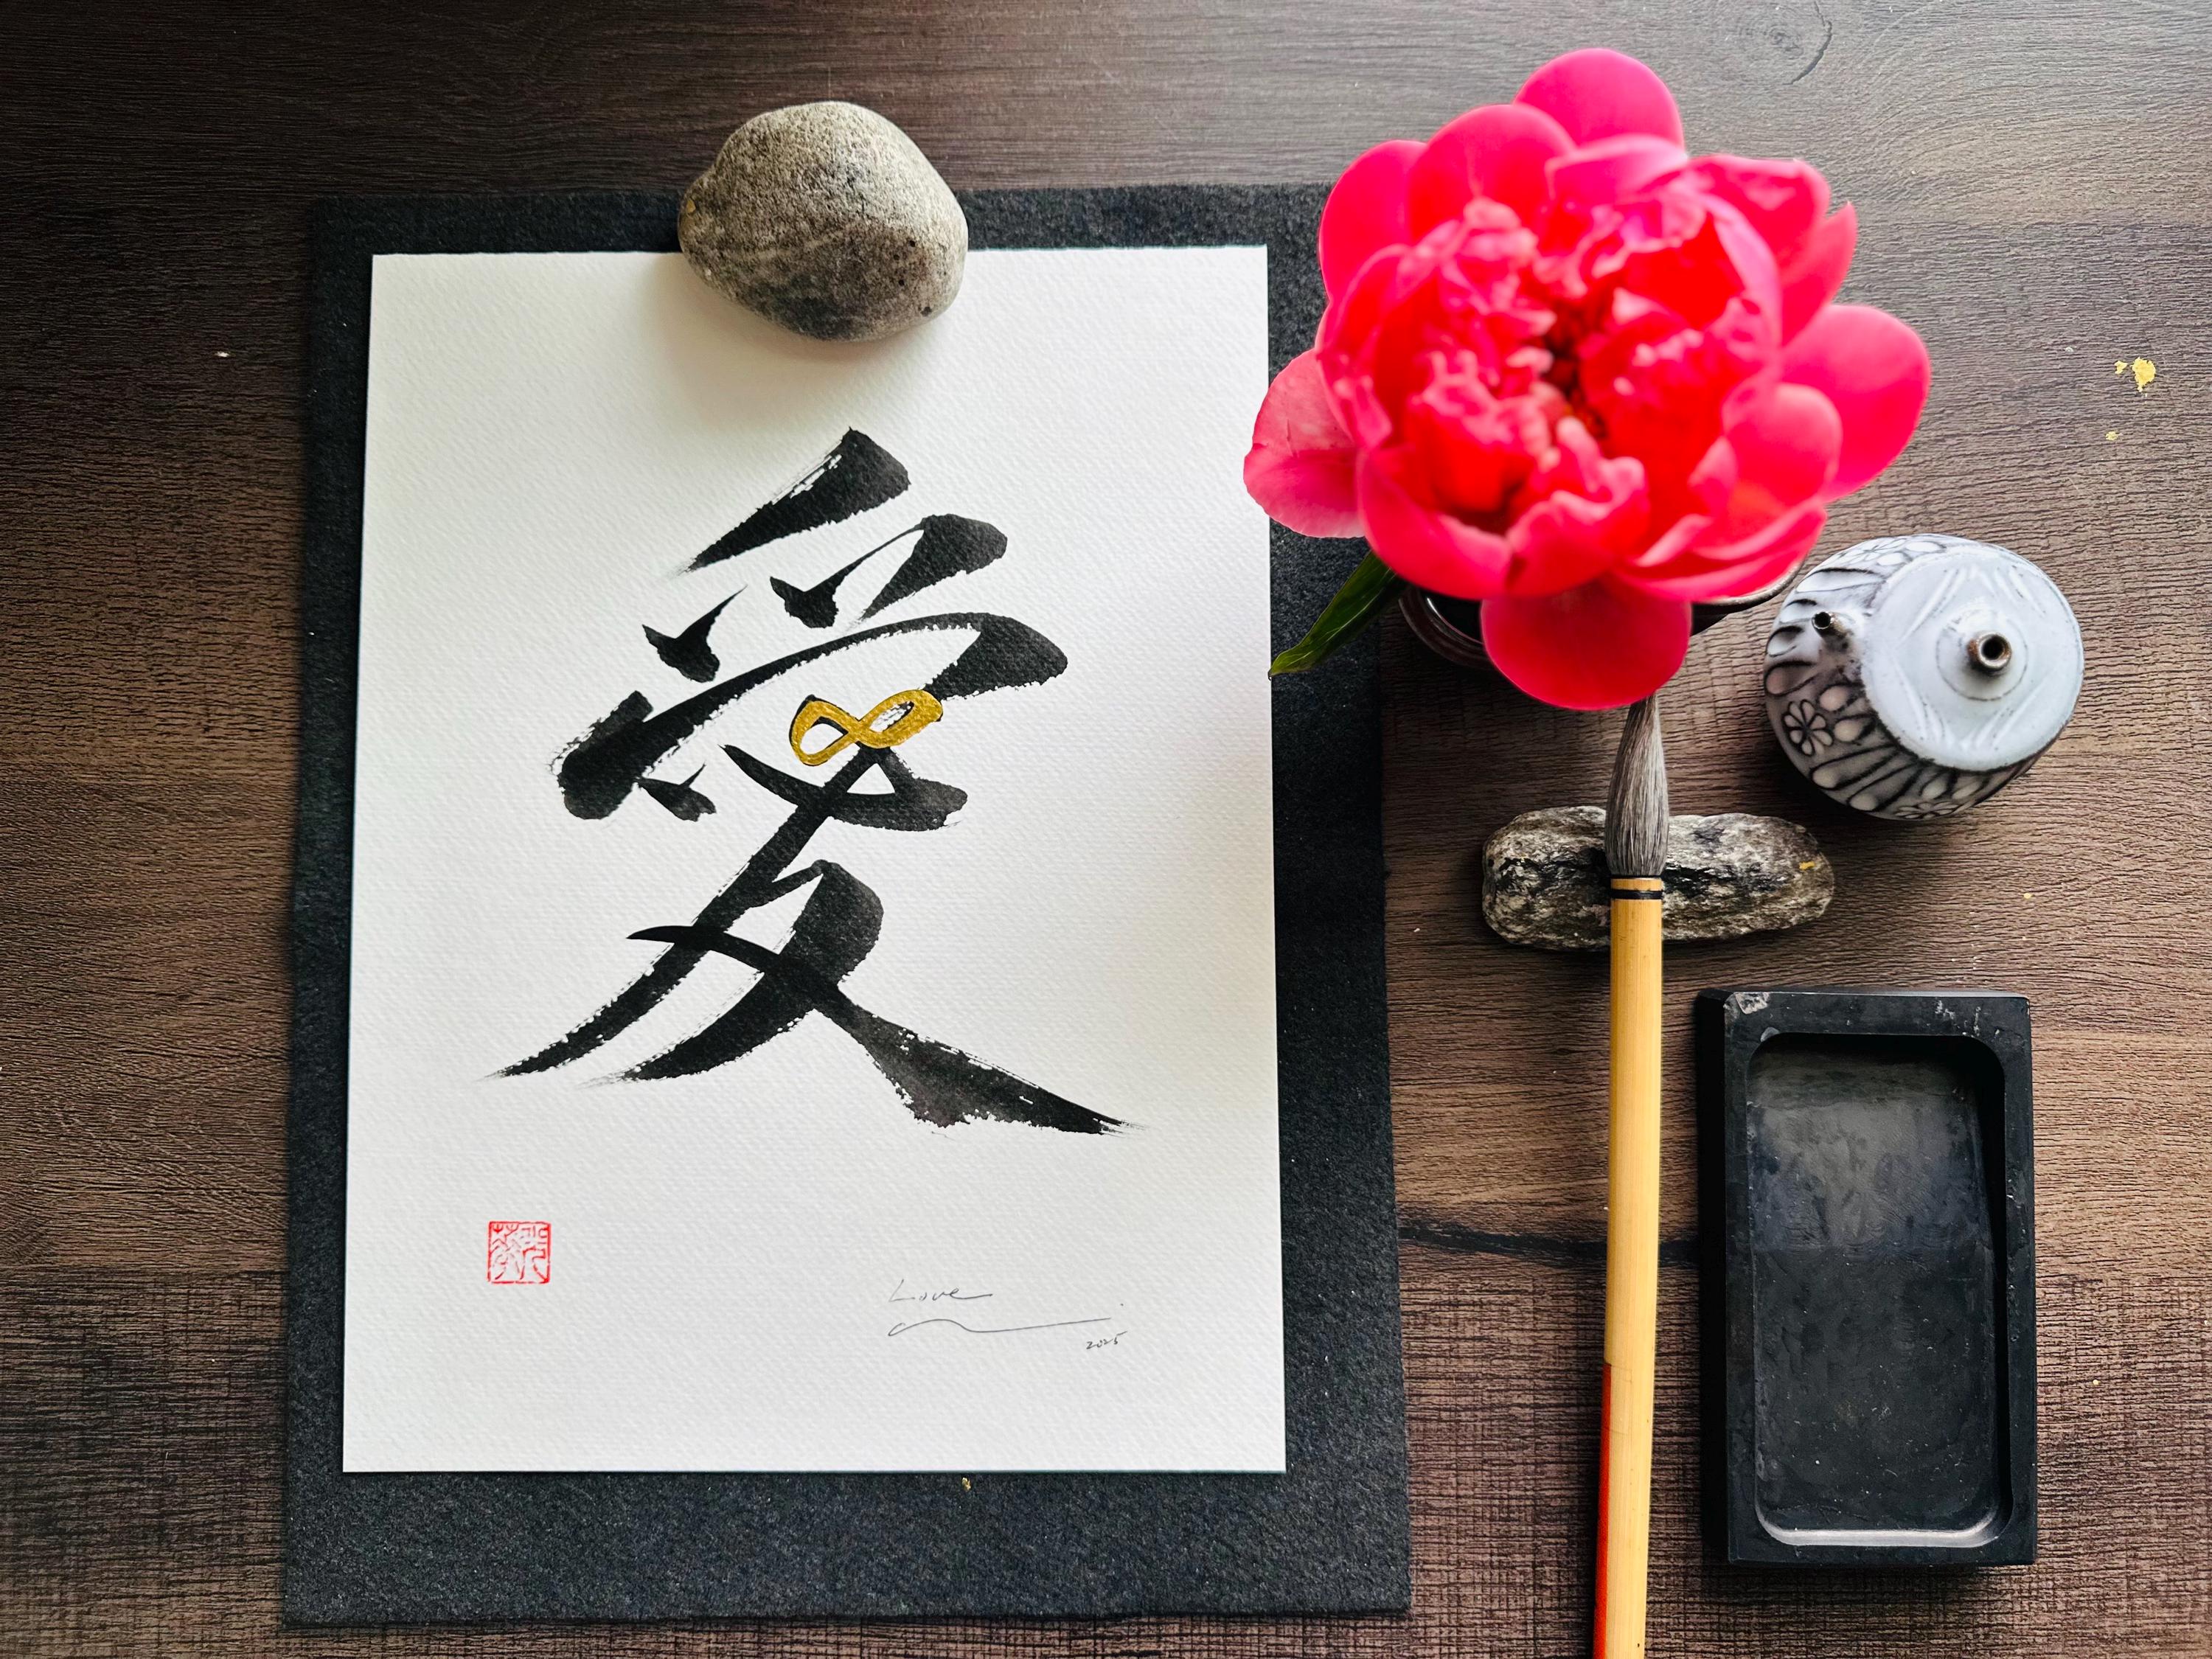 愛
Love
2025